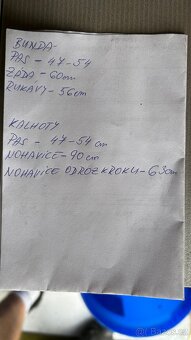 BUNDA-
PAS - 47-54
ZÁDA - 60cm
RUKÁVY - 56cm
KALHOTY
PAS - 47-54 cm
NOHAVICE - 90cm
NOHAVICE OD ROZKROKU - 63cm